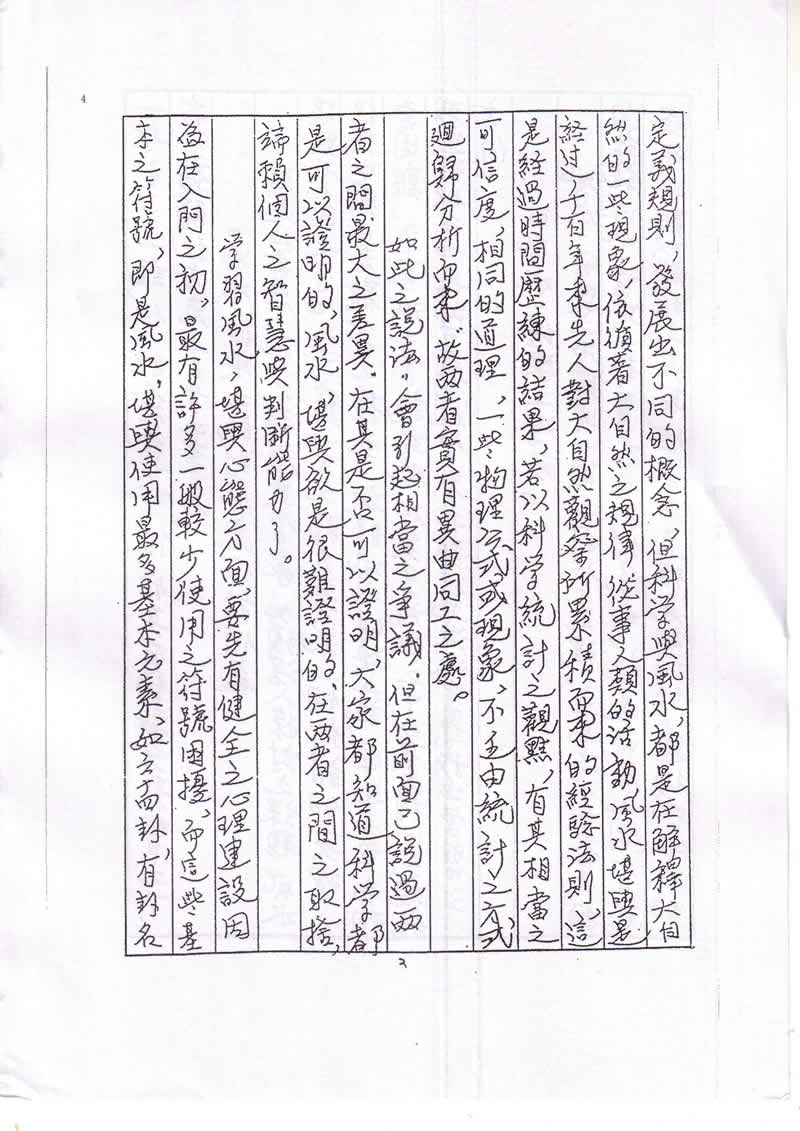 4
定義規則，發展出不同的概念，但科学與風水，都是在解釋大自
然的一些現象，依循著大自然之規律從事人類的活動，風水堪輿是
經过千百年來先人對大自然觀察所累積而來的經驗法則，這
是經過時間歷練的結果，若以科学統計之觀點，有其相當之
可信度，相同的道理，一些物理公式或現象，不也由統計之方式
迴歸分析而來，故两者實有異曲同工之處。
如此之說法，會引起相當之爭議，但在前面已說過两
者之間最大之差異，在其是否可以證明，大家都知道科学都
是可以證明的，風水，堪輿欲是很難證明的，在两者之間之取捨，
諦賴個人之智慧與判断能力了。
学習風水，堪輿心態方面，要先有健全之心理建設因
為在入門之初，最有許多一般較少使用之符號困擾，而這些基
本之符號，即是風水，堪輿使用最多基本元素，如六十四卦，有卦名
2